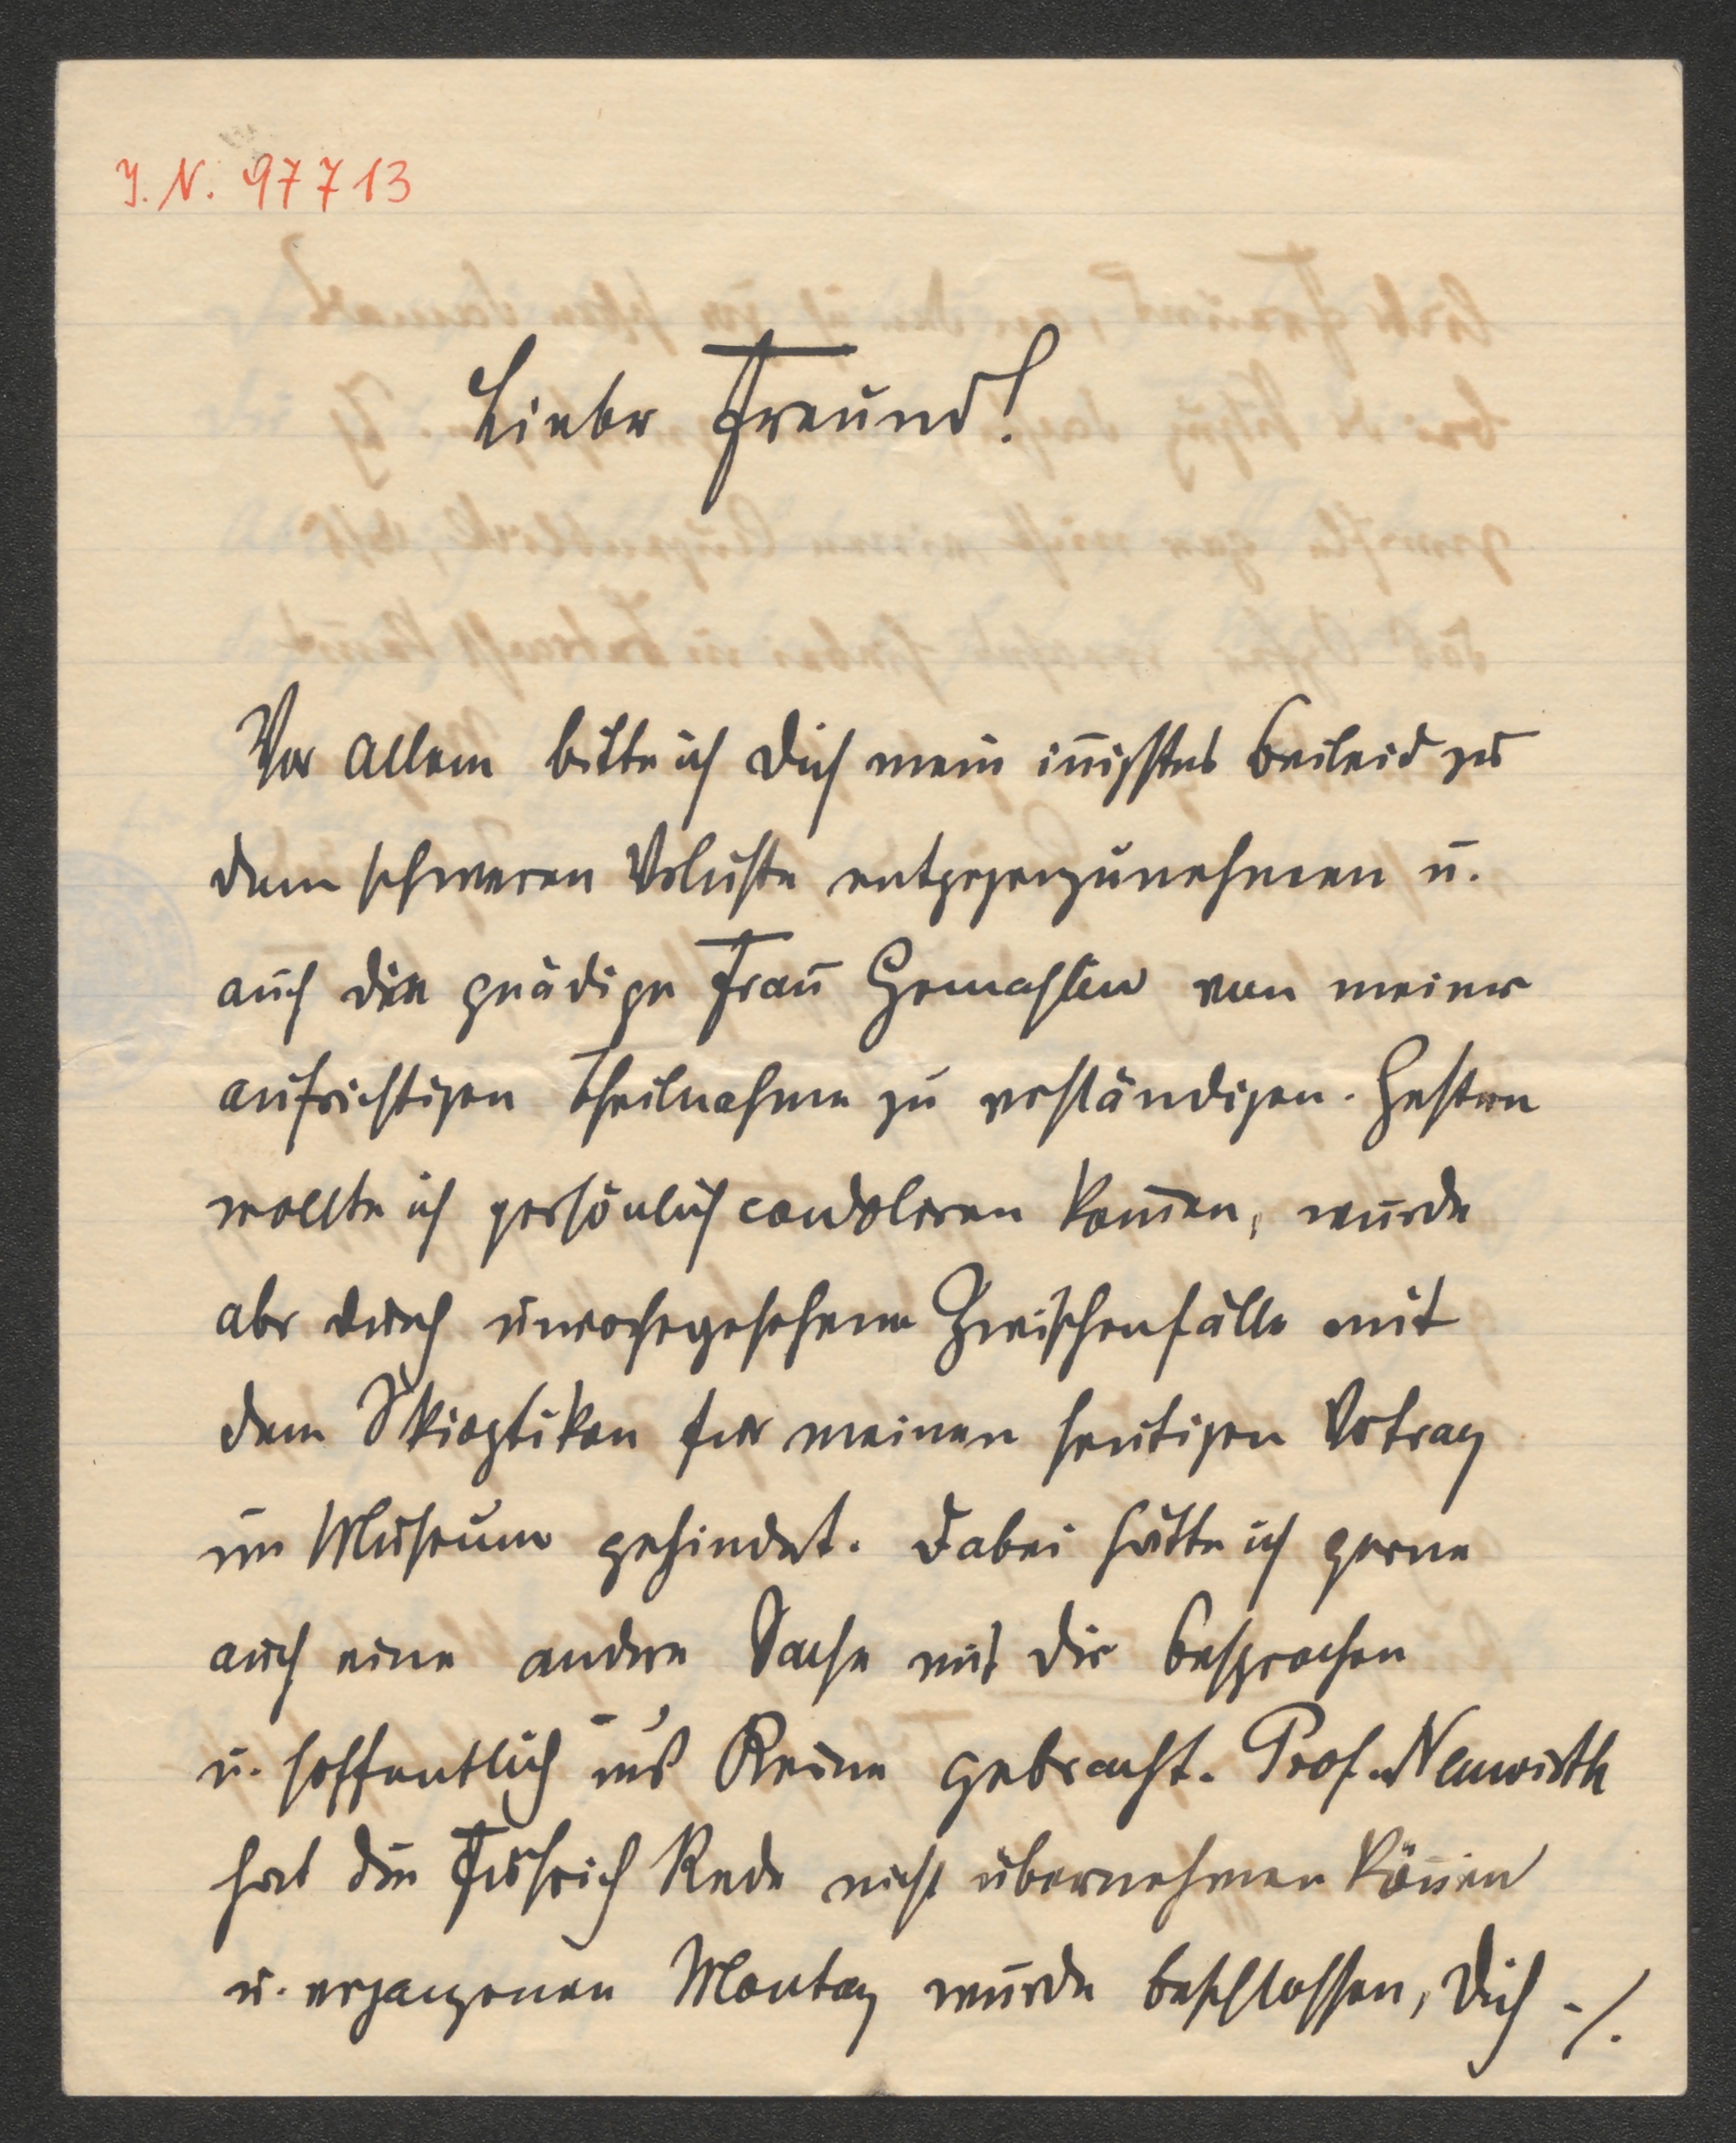 J. N. 97713
Lieber Freund!
Vor Allem bitte ich Dich mein in̄igstes Beileid zu
dem schweren Verluste entgegenzunehmen u.
auch die gnädige Frau Gemahlin von meiner
aufrichtigen Theilnahme zu verständigen. Gestern
wollte ich persönlich condoliren kom̄en, wurde
aber durch unvorhergesehene Zwischenfälle mit
dem Skioptikon für meinen heutigen Vortrag
im Museum gehindert. Dabei hätte ich gerne
auch eine andere Sache mit Dir besprochen
u. hoffentlich ins Reine gebracht. Prof. Neuwirth
hat die Führich Rede nicht übernehmen kön̄en
u. vergangenen Montag wurde beschlossen, Dich ./.